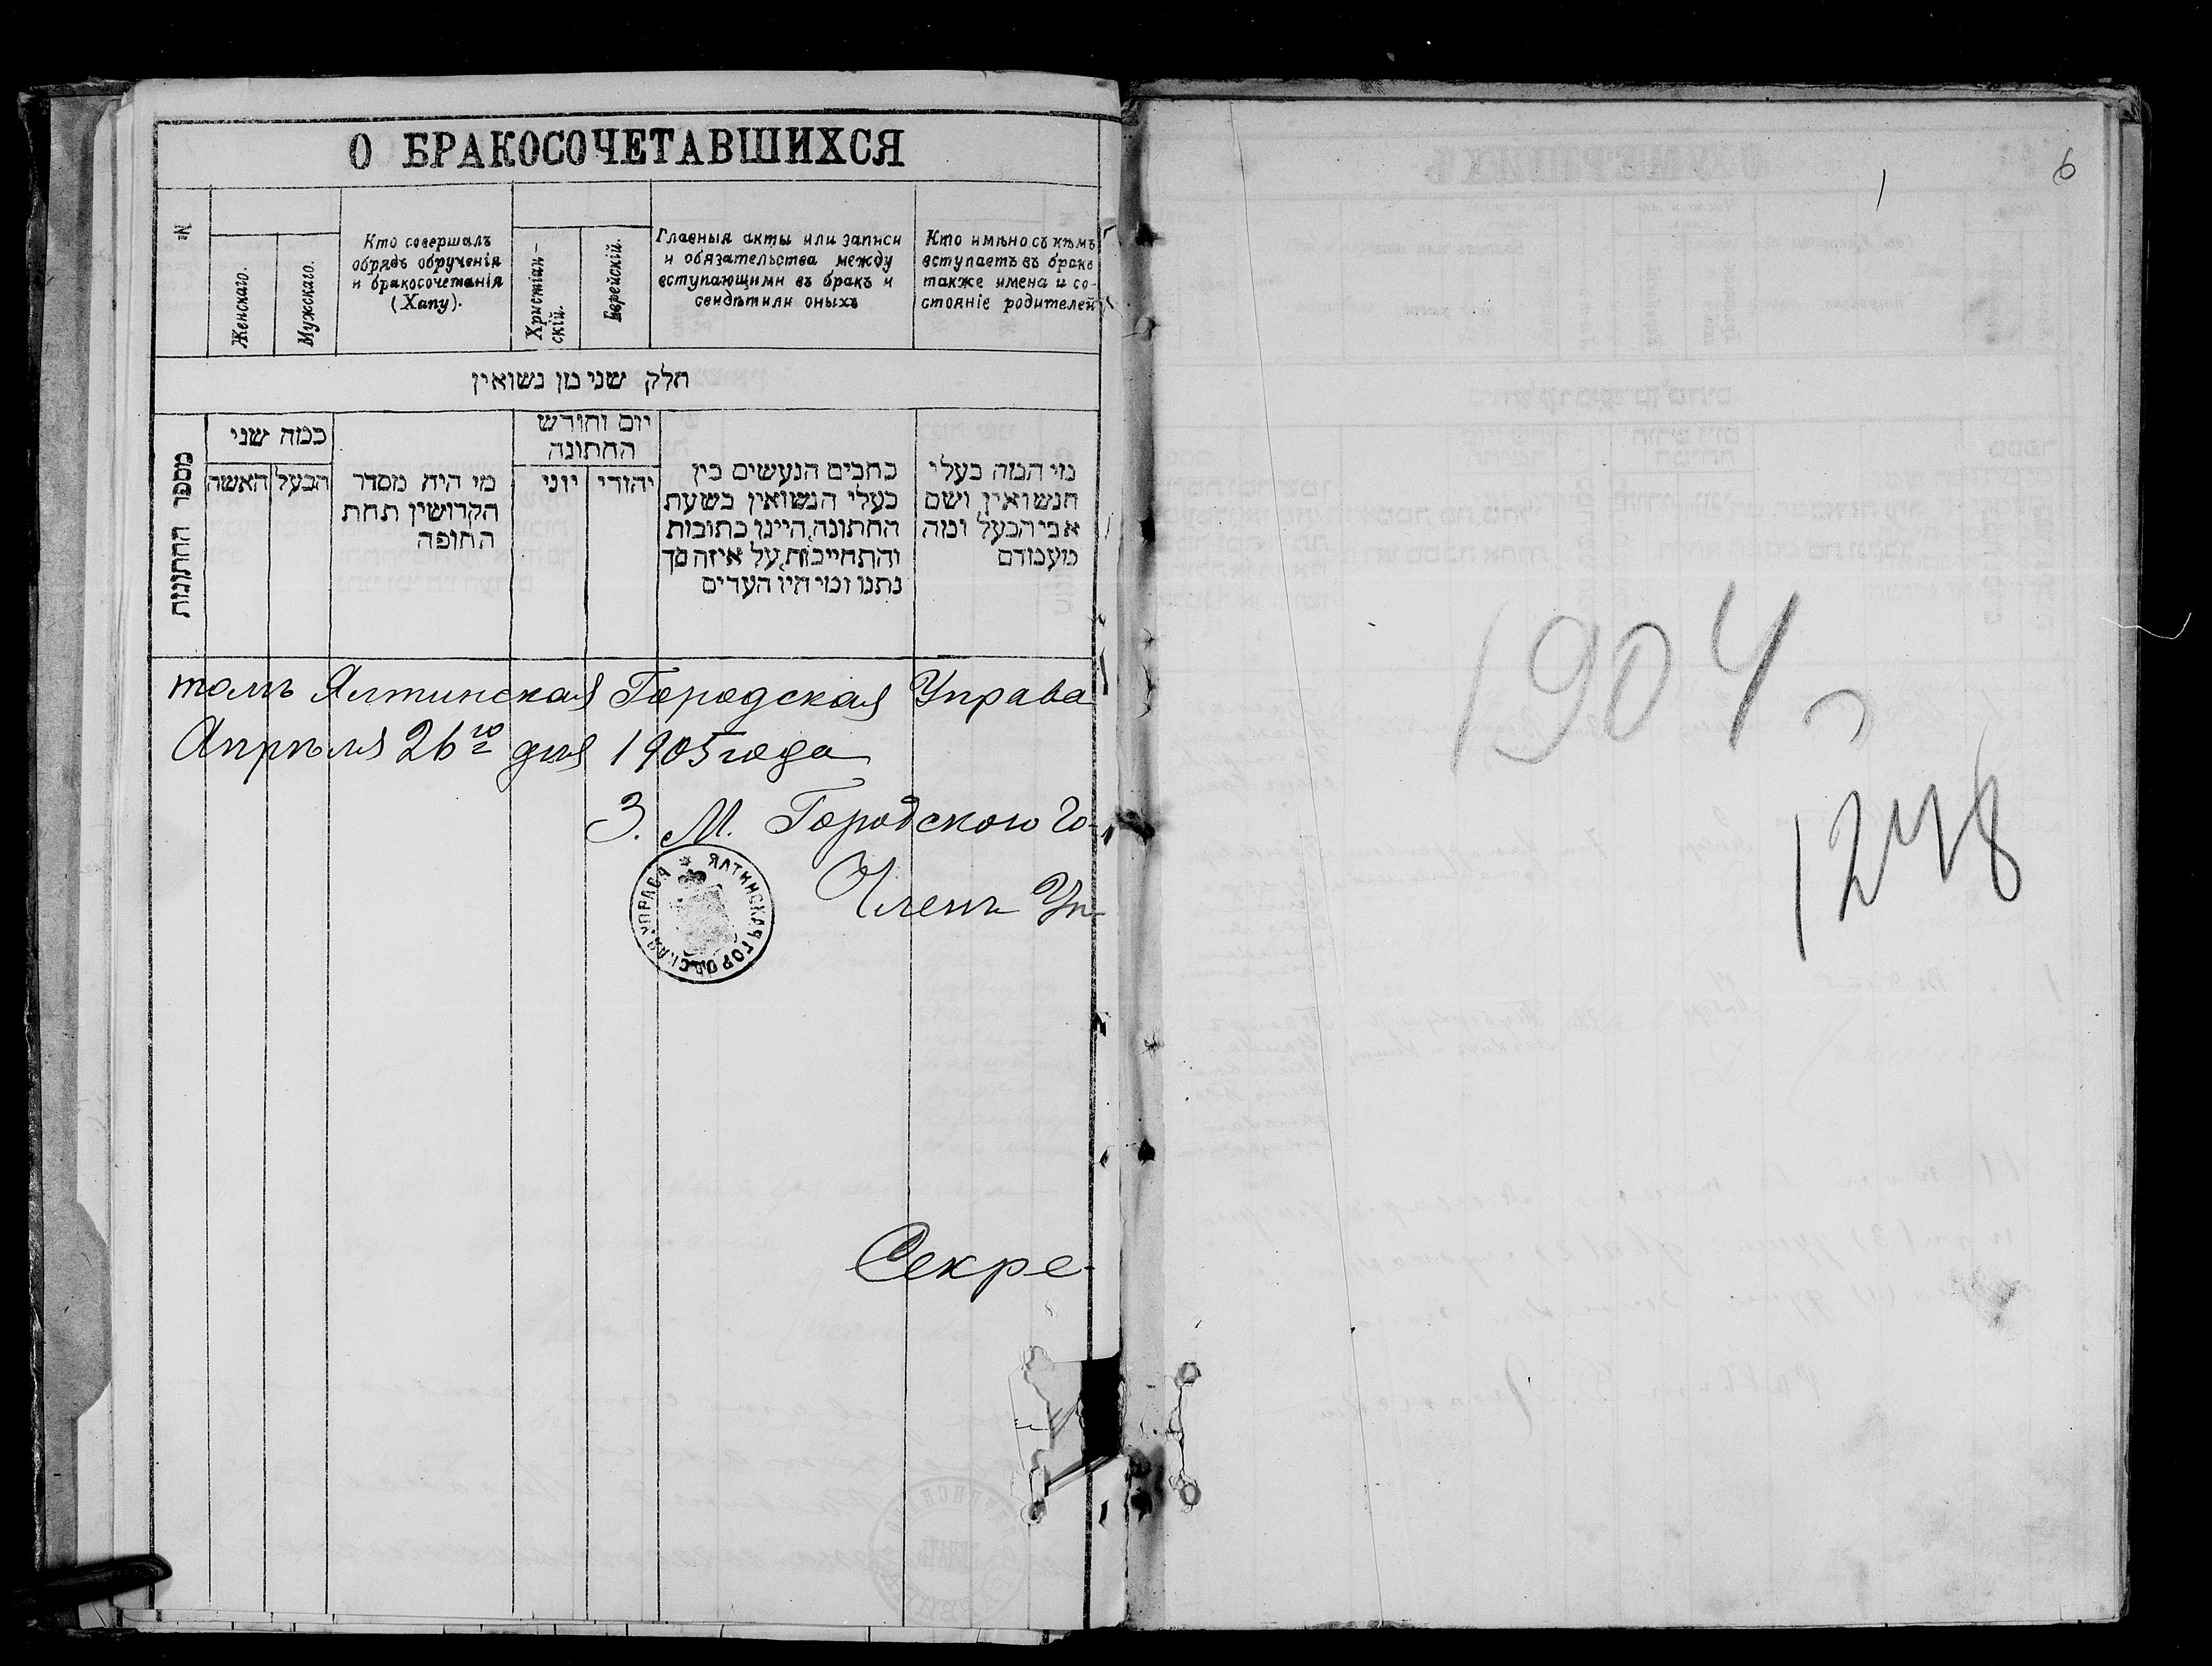 О БРАКОСОЧЕТАВШИХСЯ
№
Женскаго.
Мужскаго.
Кто совершалъ
обрядъ обрученія
и бракосочетанія
(Хапу).
Христіан-
скій.
Еврейскій.
Главныя акты или записи
и обязательства между
вступающими въ бракъ и
свидѣтили оныхъ
Кто имѣно съ кѣмъ
вступаетъ въ бракъ
также имена и со-
стояніе родителей
חלק שני מן נשואין
מספר החתונות
כמה שני
האשה
הבעל
מי היה מסדר
הקדושין תחת
החופה
יום וחודש
החתונה
יוני
יהודי
כתבים הנעשים בין
בעלי הנשואין בשעת
החתונה היינו כתובות
והתחייבות על איזה סך
נתנו ומי היו העדים
מי המה בעלי
הנשואין ושם
אבי הבעל ומה
מעמדם
томъ Ялтинская Городская Управа
Апрѣля 26го дня 1905 года
З. М. Городского Го-
Членъ Уп-
ЯЛТИНСКАЯ ГОРОДСКАЯ УПРАВА
Секре-
6
1904
1248